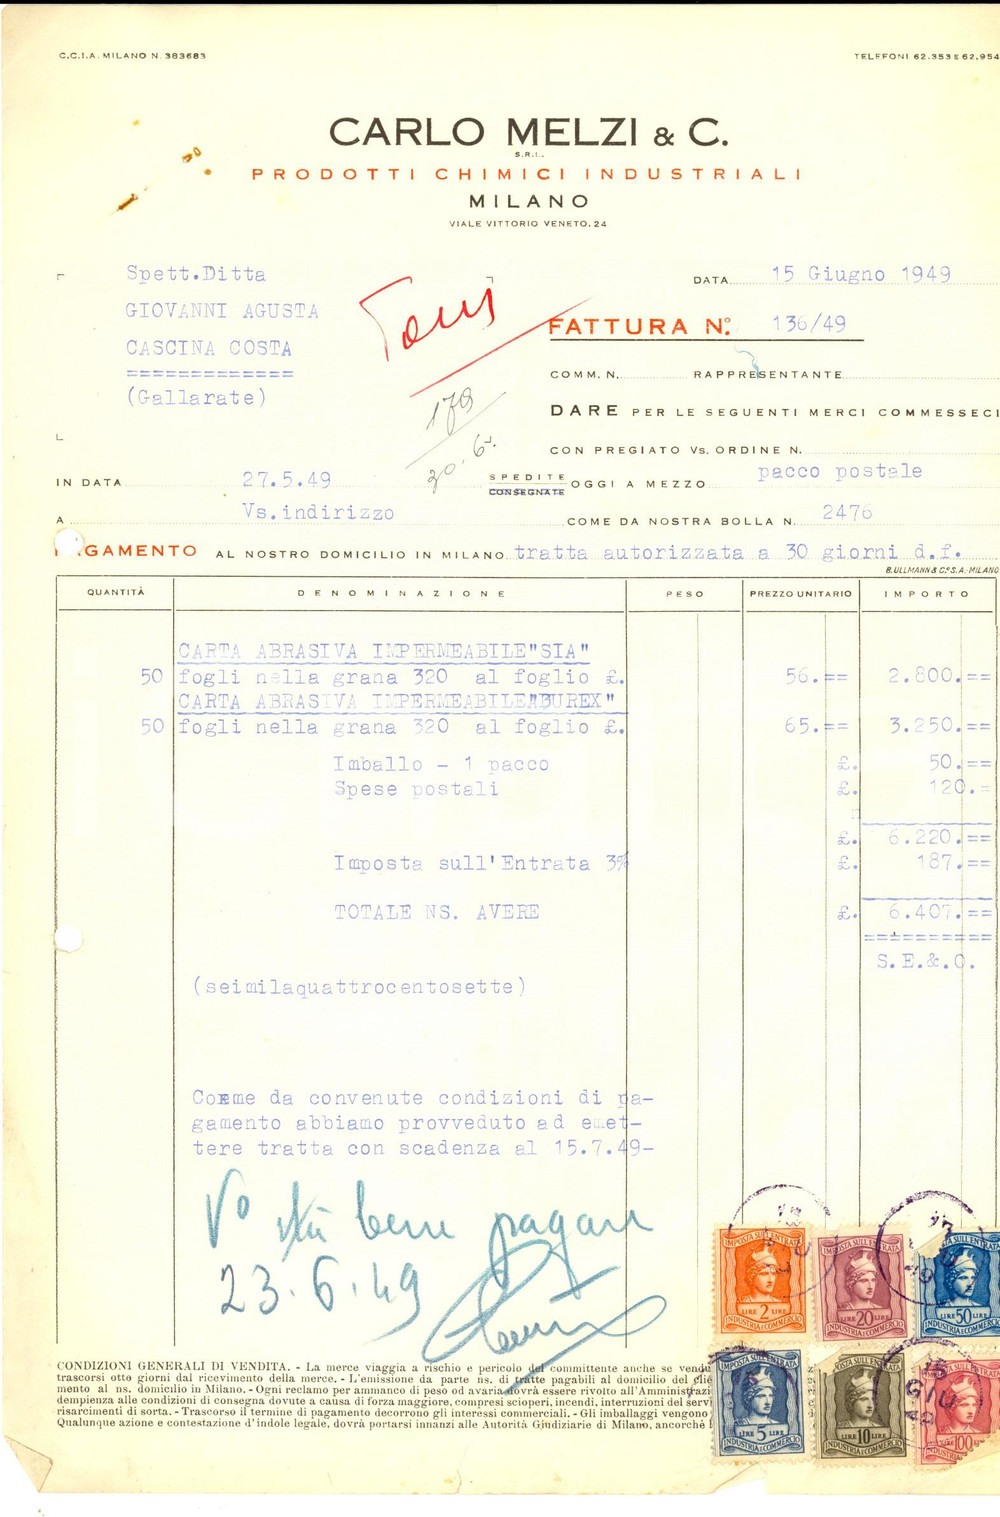 C.C.I.A. MILANO N. 383683
TELEFONI 62.353 E 62.954
CARLO MELZI & C.
S.R.L.
PRODOTTI CHIMICI INDUSTRIALI
MILANO
VIALE VITTORIO VENETO, 24
Spett.Ditta
DATA 15 Giugno 1949
GIOVANNI AGUSTA
FATTURA N.° 136/49
CASCINA COSTA
=============
(Gallarate)
COMM. N. RAPPRESENTANTE
179
DARE PER LE SEGUENTI MERCI COMMESSECI
20.6.
CON PREGIATO Vs. ORDINE N.
IN DATA 27.5.49
SPEDITE CONSEGNATE OGGI A MEZZO pacco postale
A Vs.indirizzo
COME DA NOSTRA BOLLA N. 2476
PAGAMENTO AL NOSTRO DOMICILIO IN MILANO tratta autorizzata a 30 giorni d.f.
B. ULLMANN & C.° S.A.-MILANO
QUANTITÀ DENOMINAZIONE PESO PREZZO UNITARIO IMPORTO
CARTA ABRASIVA IMPERMEABILE"SIA"
50 fogli nella grana 320 al foglio £. 56.== 2.800.==
CARTA ABRASIVA IMPERMEABILE"BUREX"
50 fogli nella grana 320 al foglio £. 65.== 3.250.==
Imballo - 1 pacco £. 50.==
Spese postali £. 120.=
£. 6.220.==
Imposta sull'Entrata 3% £. 187.==
TOTALE NS. AVERE £. 6.407.==
==========
S.E.&.O.
(seimilaquattrocentosette)
Come da convenute condizioni di pa-
gamento abbiamo provveduto ad emet-
tere tratta con scadenza al 15.7.49-
V° sta bene pagare
23.6.49
CONDIZIONI GENERALI DI VENDITA. - La merce viaggia a rischio e pericolo del committente anche se vendu
trascorsi otto giorni dal ricevimento della merce. - L'emissione da parte ns. di tratte pagabili al domicilio del clie
mento al ns. domicilio in Milano. - Ogni reclamo per ammanco di peso od avaria dovrà essere rivolto all'Amministrazi
dempienza alle condizioni di consegna dovute a causa di forza maggiore, compresi scioperi, incendi, interruzioni del servi
risarcimenti di sorta. - Trascorso il termine di pagamento decorrono gli interessi commerciali. - Gli imballaggi vengono
Qualunque azione e contestazione d'indole legale, dovrà portarsi innanzi alle Autorità Giudiziarie di Milano, ancorchè
IMPOSTA SULL'ENTRATA
LIRE 2 LIRE
INDUSTRIA E COMMERCIO
IMPOSTA SULL'ENTRATA
LIRE 20 LIRE
INDUSTRIA E COMMERCIO
LIRE 50 LIRE
INDUSTRIA E COMMERCIO
IMPOSTA SULL'ENTRATA
LIRE 5 LIRE
INDUSTRIA E COMMERCIO
LIRE 10 LIRE
INDUSTRIA E COMMERCIO
15
GIU
49
LIRE 100
INDUSTRIA E COMMERCIO